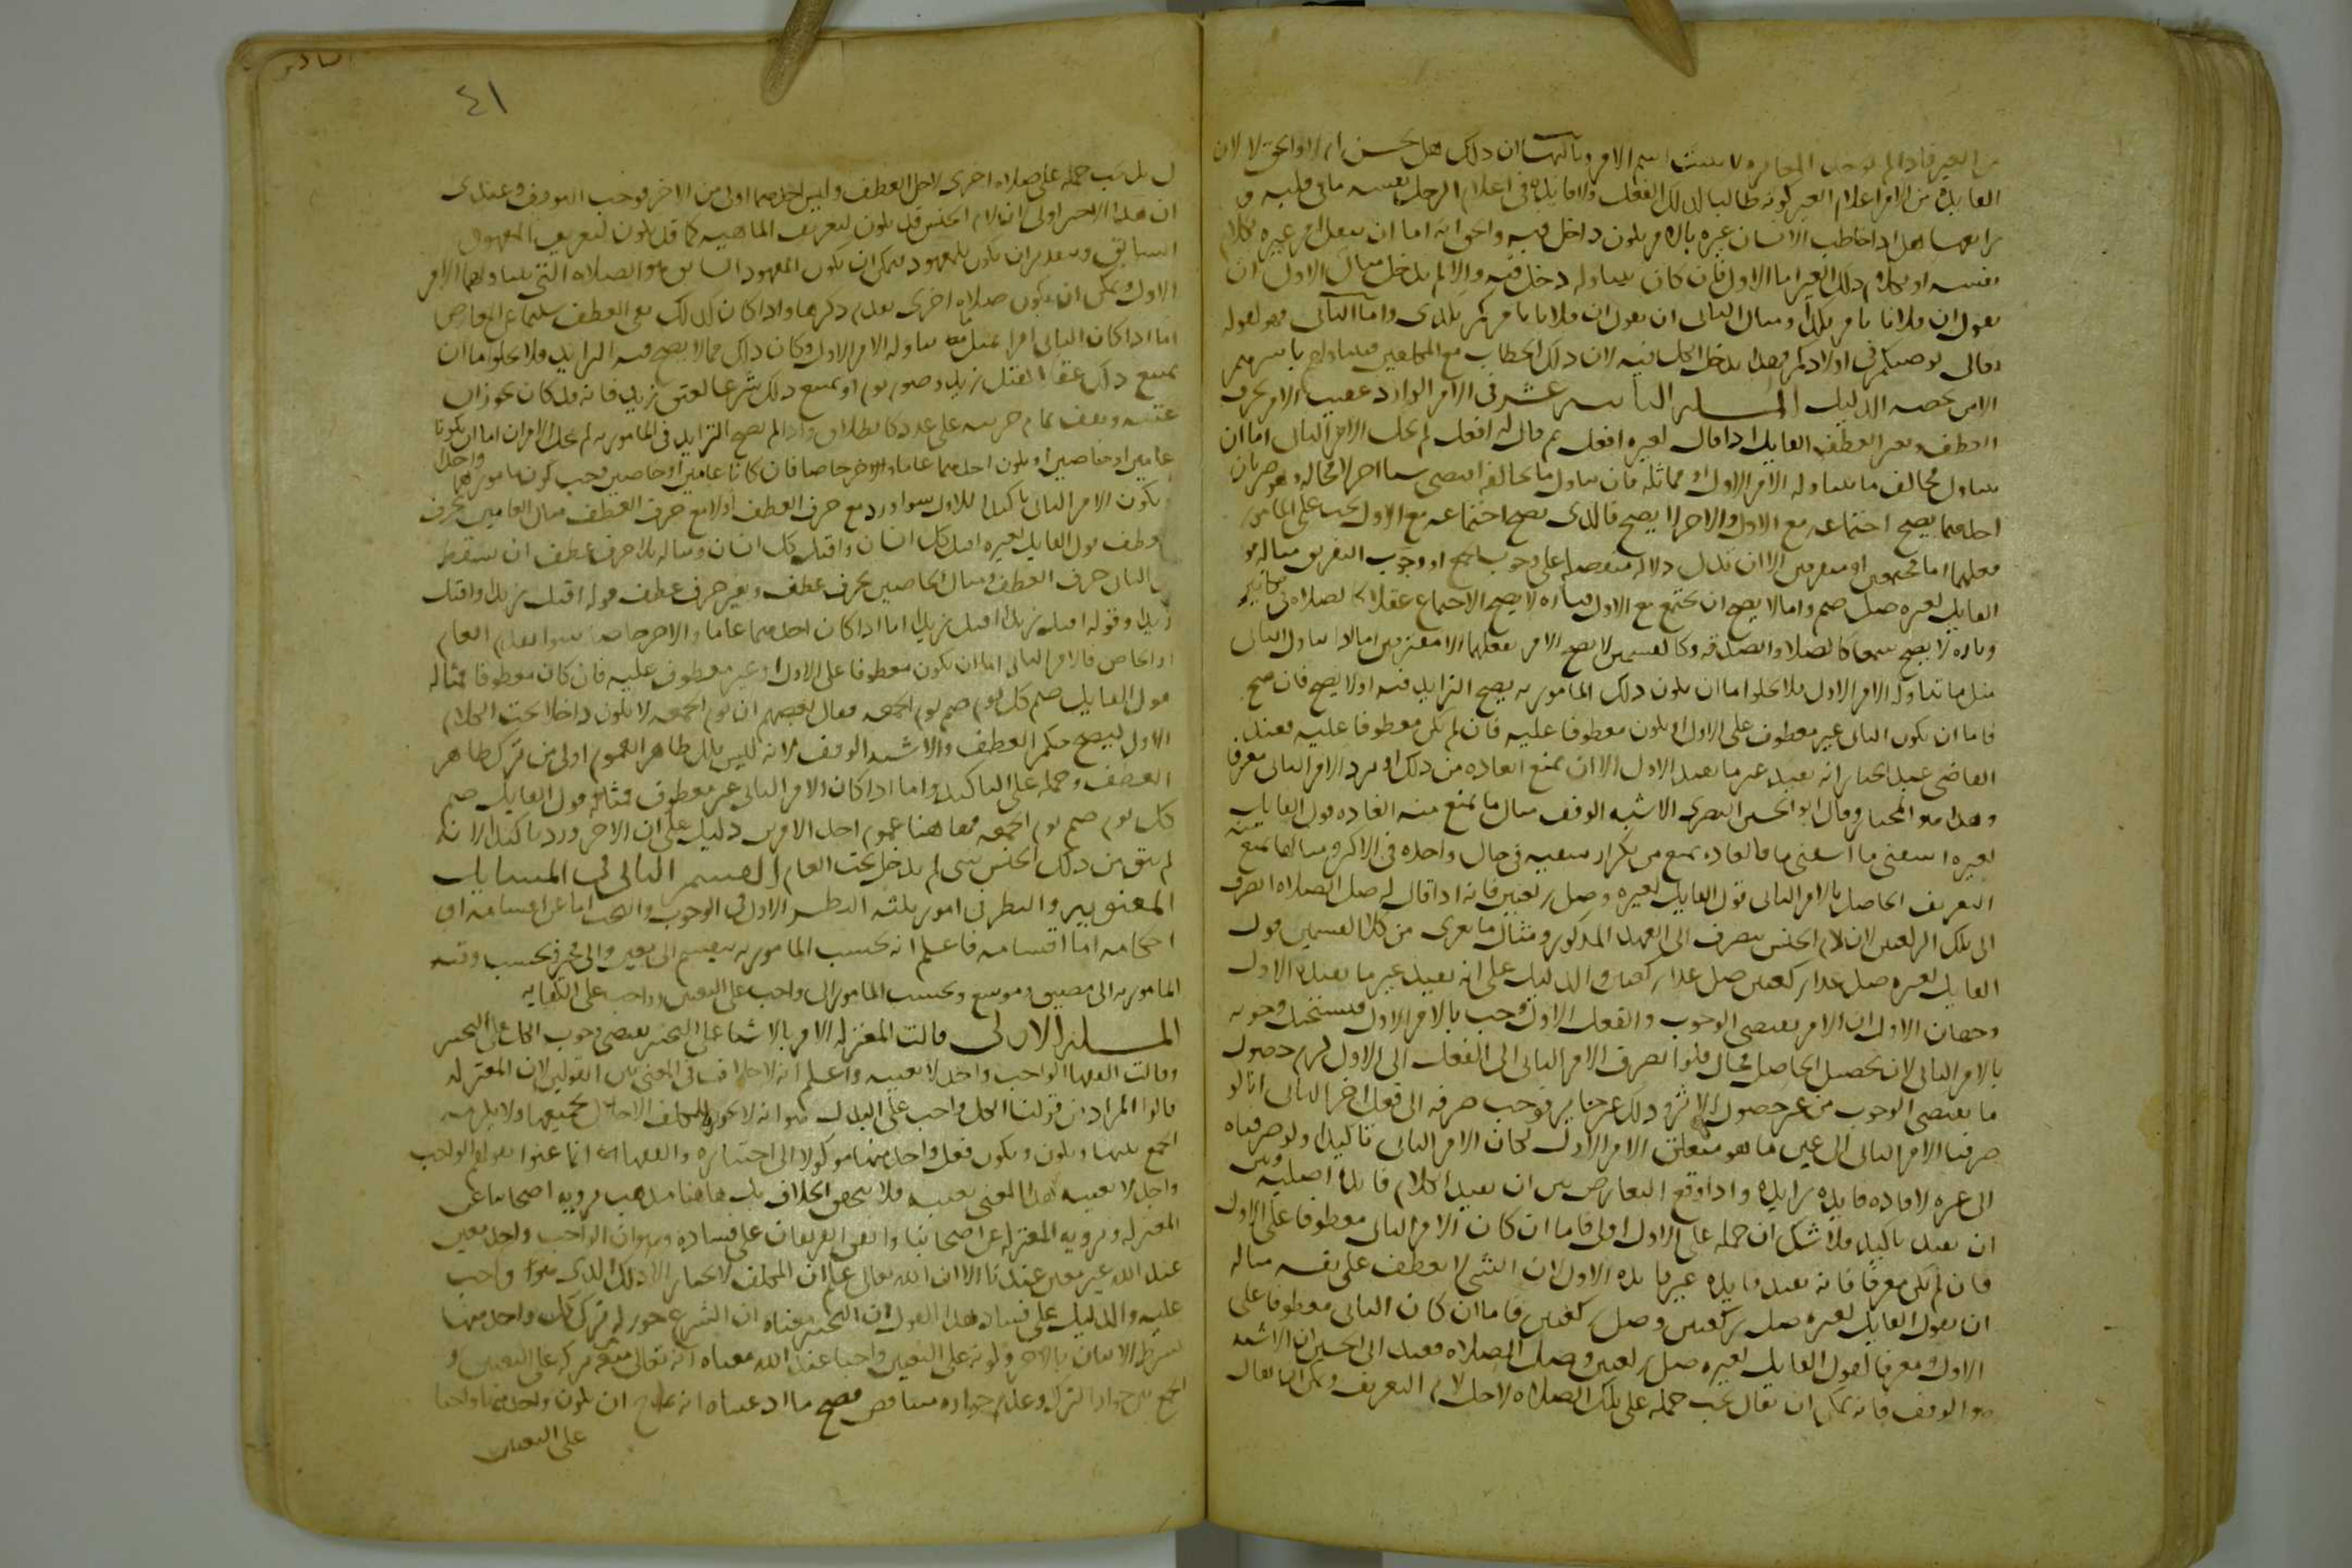 من الغير فاذا لم توجد المغايرة لا يثبت اسم الامر وثالثها ان ذلك هل يحسن ام لا والحق لا لان
الفايدة من الامر اعلام الغير كونه طالبا لذلك الفعل ولا فايدة في اعلام الرجل نفسه ما في قلبه و
رابعها هل اذا خاطب الانسان غيره بالامر يكون داخلا فيه والحق انه اما ان ينقل امر غيره بكلام
نفسه او بكلام ذلك الغير اما الاول فان كان يتناوله دخل فيه والا لم يدخل مثال الاول ان
نقول ان فلانا يامرنا بكذا ومثال الثاني ان نقول ان فلانا يامركم بكذى واما الثاني فهو كقوله
تعالى يوصيكم الله في اولادكم فهذا يدخل الكل فيه لان ذلك الخطاب مع المكلفين فيتناولهم باسرهم
الا من يخصه الدليل المسئلة السادسة عشر في الامر الوارد عقيب الامر بحرف
العطف وبغير العطف القايل اذا قال لغيره افعل ثم قال له افعل لم يخل الامر الثاني اما ان
يتناول مخالف ما يتناوله الامر الاول او مماثله فان تناول ما يخالفه اقتضى شيا اخر لا محالة وهو ضربان
احدهما يصح اجتماعه مع الاول والاخر لا يصح فالذي يصح اجتماعه مع الاول يجب على المامور
فعلهما اما مجتمعين او مفترقين الا ان تدل دلالة منفصلة على وجوب الجمع او وجوب التفريق مثاله قول
القايل لغيره صل صم واما لا يصح ان يجتمع مع الاول فتارة لا يصح الاجتماع عقلا كالصلاة في مكانين
وتارة لا يصح سمعا كالصلاة والصدقة وكلا القسمين لا يصح الامر بفعلهما الا مفترقين اما اذا تناول الثاني
مثل ما تناوله الامر الاول فلا يخلوا اما ان يكون ذلك المامور به يصح التزايد فيه او لا يصح فان صح
فاما ان يكون الثاني غير معطوف على الاول او يكون معطوفا عليه فان لم يكن معطوفا عليه فعند
القاضي عبد الجبار انه يفيد غير ما يفيد الاول الا ان تمنع العادة من ذلك او يرد الامر الثاني معرفا
وهذا هو المختار وقال ابو الحسين البصري الاشبه الوقف مثال ما تمنع منه العادة قول القايل
لغيره اسقني ما اسقني ما فالعادة تمنع من تكرار سقيه في حال واحدة في الاكثر ومثال ما يمنع منه
التعريف الحاصل بالامر الثاني قول القايل لغيره صل ركعتين فانه اذا قال له صل الصلاة انصرف
الى تلك الركعتين لان لام الجنس ينصرف الى العهد المذكور ومثال ما يعرى من كلا القسمين قول
القايل لغيره صل غدا ركعتين صل غدا ركعتين والدليل على انه يفيد غير ما يفيده الاول
وجهان الاول ان الامر يقتضي الوجوب والفعل الاول وجب بالامر الاول فيستحيل وجوبه
بالامر الثاني لان تحصيل الحاصل محال فلو انصرف الامر الثاني الى الفعل الاول لزم حصول
ما يقتضي الوجوب من غير حصول الاثر وذلك غير جايز فوجب صرفه الى فعل اخر الثاني انا لو
صرفنا الامر الثاني الى عين ما هو متعلق الامر الاول لكان الامر الثاني تاكيدا ولو صرفناه
الى غيره لافاد فايدة زايدة واذا وقع التعارض بين ان يفيد الكلام فايدة اصلية وبين
ان يفيد تاكيدا فلا شك ان حمله على الاول اولى فاما ان كان الامر الثاني معطوفا على الاول
فان لم يكن معرفا فانه يفيد فايدة غير فايدة الاول لان الشي لا يعطف على نفسه مثاله
ان يقول القايل لغيره صل ركعتين وصل ركعتين فاما ان كان الثاني معطوفا على
الاول ومعرفا كقول القايل لغيره صل ركعتين وصل الصلاة فعند ابي الحسين ان الاشبه
هو الوقف فانه يمكن ان يقال يجب حمله على تلك الصلاة لاجل لام التعريف ويمكن ايضا ان يقال
٤١
بل يجب حمله على صلاة اخرى لاجل العطف وليس احدهما اولى من الاخر فوجب التوقف وعندى
ان هذا الاخير اولى لان لام الجنس قد يكون لتعريف الماهية كما قد يكون لتعريف المعهود
السابق وبتقدير ان يكون للمعهود فيمكن ان يكون المعهود السابق هو الصلاة التي يتناولها الامر
الاول ويمكن ان يكون صلاة اخرى تقدم ذكرها واذا كان كذلك بقي العطف سليما عن المعارض
اما اذا كان الثاني امرا بمثل ما تناوله الامر الاول وكان ذلك مما لا يصح فيه التزايد فلا يخلوا اما ان
يمتنع ذلك عقلا كقتل زيد وصوم يوم او يمتنع ذلك شرعا كعتق زيد فانه قد كان يجوز ان
عتقه ويقف تمام حريته على عدد كالطلاق واذا لم يصح التزايد في المامور به لم يخل الامران اما ان يكونا
عامين او خاصين او يكون احدهما عاما والاخر خاصا فان كانا عامين او خاصين وجب كون مامورهما واحدا
ويكون الامر الثاني تاكيدا للاول سواء ورد مع حرف العطف او لا مع حرف العطف مثال العامين بحرف
عطف قول القايل لغيره اقتل كل انسان واقتل كل انسان ومثاله بلا حرف عطف ان يسقط
من الثاني حرف العطف ومثال الخاصين بحرف عطف وبغير حرف عطف قوله اقتل زيدا واقتل
زيدا وقوله اقتل زيدا اقتل زيدا اما اذا كان احدهما عاما والاخر خاصا سواء تقدم العام
او الخاص فالامر الثاني اما ان يكون معطوفا على الاول او غير معطوف عليه فان كان معطوفا فمثاله
قول القايل صم كل يوم صم يوم الجمعه فقال بعضهم ان يوم الجمعه لا يكون داخلا تحت الكلام
الاول ليصح حكم العطف والاشبه الوقف لانه ليس ترك ظاهر العموم اولى من ترك ظاهر
العطف وحمله على التاكيد واما اذا كان الامر الثاني غير معطوف فمثاله قول القايل صم
كل يوم صم يوم الجمعه فهاهنا عموم احد الامرين دليل على ان الاخر ورد تاكيدا لانه
لم يبق من ذلك الجنس شي لم يدخل تحت العام القسم الثاني في المسايل
المعنويه والنظر في امور ثلثه النظر الاول في الوجوب والبحث اما عن اقسامه او
احكامه اما اقسامه فاعلم انه بحسب المامور به ينقسم الى معين والى مخير وبحسب وقت
المامور به الى مضيق وموسع وبحسب المامور الى واجب على التعيين وواجب على الكفايه
المسئلة الاولى قالت المعتزله الامر بالاشيا على التخيير يقتضي وجوب الكل على التخيير
وقالت الفقها الواجب واحد لا بعينه واعلم انه لا خلاف في المعنى بين القولين لان المعتزله
قالوا المراد من قولنا الكل واجب على البدل هو انه لا يجوز للمكلف الاخلال بجميعها ولا يلزمه
الجمع بينها ويكون فعل واحد منها موكولا الى اختياره والفقهاء انما عنوا بقولهم الواجب
واحد لا بعينه هذا المعنى بعينه فلا يتحقق الخلاف بل هاهنا مذهب يرويه اصحابنا عن
المعتزله ويرويه المعتزله عن اصحابنا واتفق الفريقان على فساده وهو ان الواجب واحد معين
عند الله غير معين عندنا الا ان الله تعالى علم ان المكلف لا يختار الا ذلك الذي هو واجب
عليه والدليل على فساد هذا القول ان التخيير معناه ان الشرع جوز له ترك كل واحد منها
بشرط الاتيان بالاخر وكونه على التعيين واجبا عند الله معناه انه تعالى منعه من تركه على التعيين و
الجمع بين جواز الترك وعدم جوازه متناقض فصح ما ادعيناه انه يمتنع ان يكون واحد منها واجبا
على التعيين